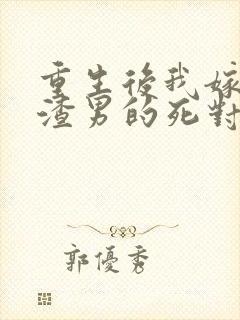 重生後我嫁
渣男的死對
郭優秀